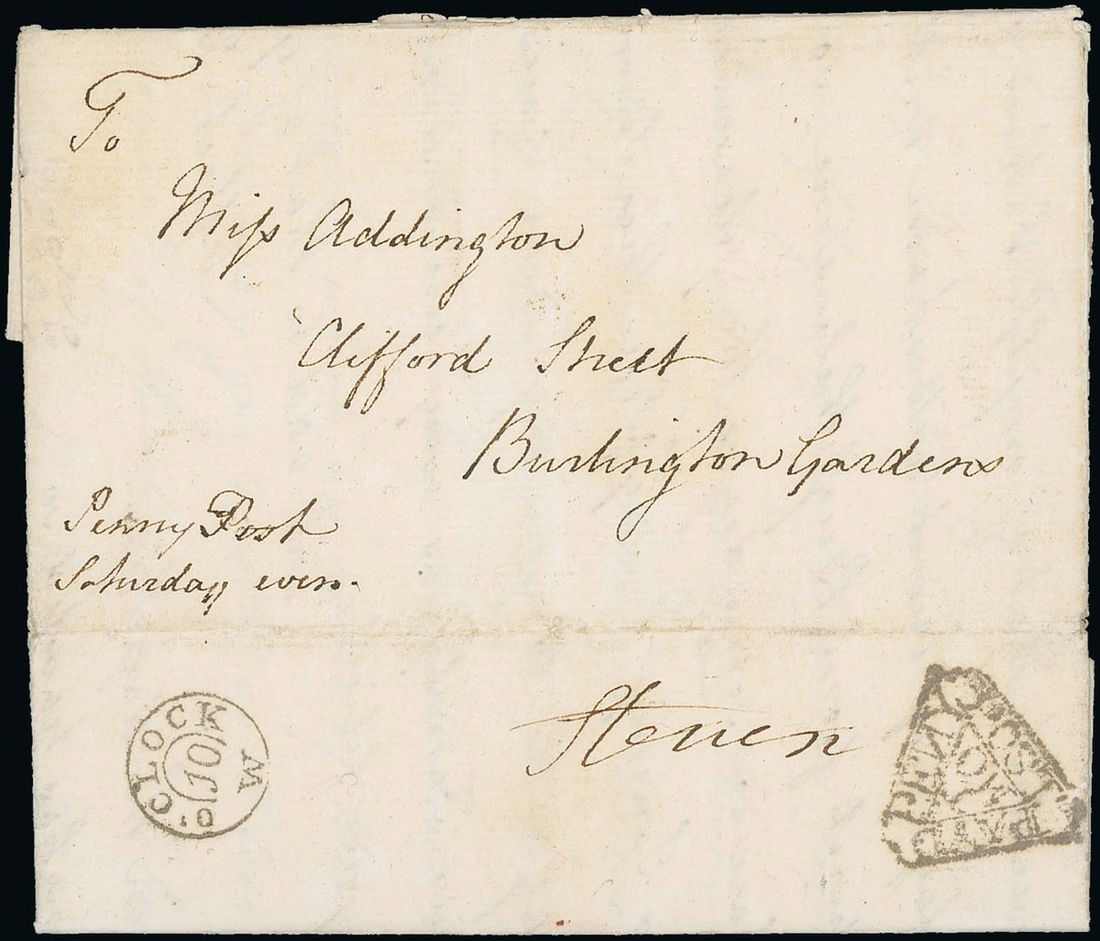 To
Miſs Addington
Clifford Street
Burlington Gardens
Penny Post
Saturday even.
Steven
10 O'CLOCK W
PENNY POST PAID